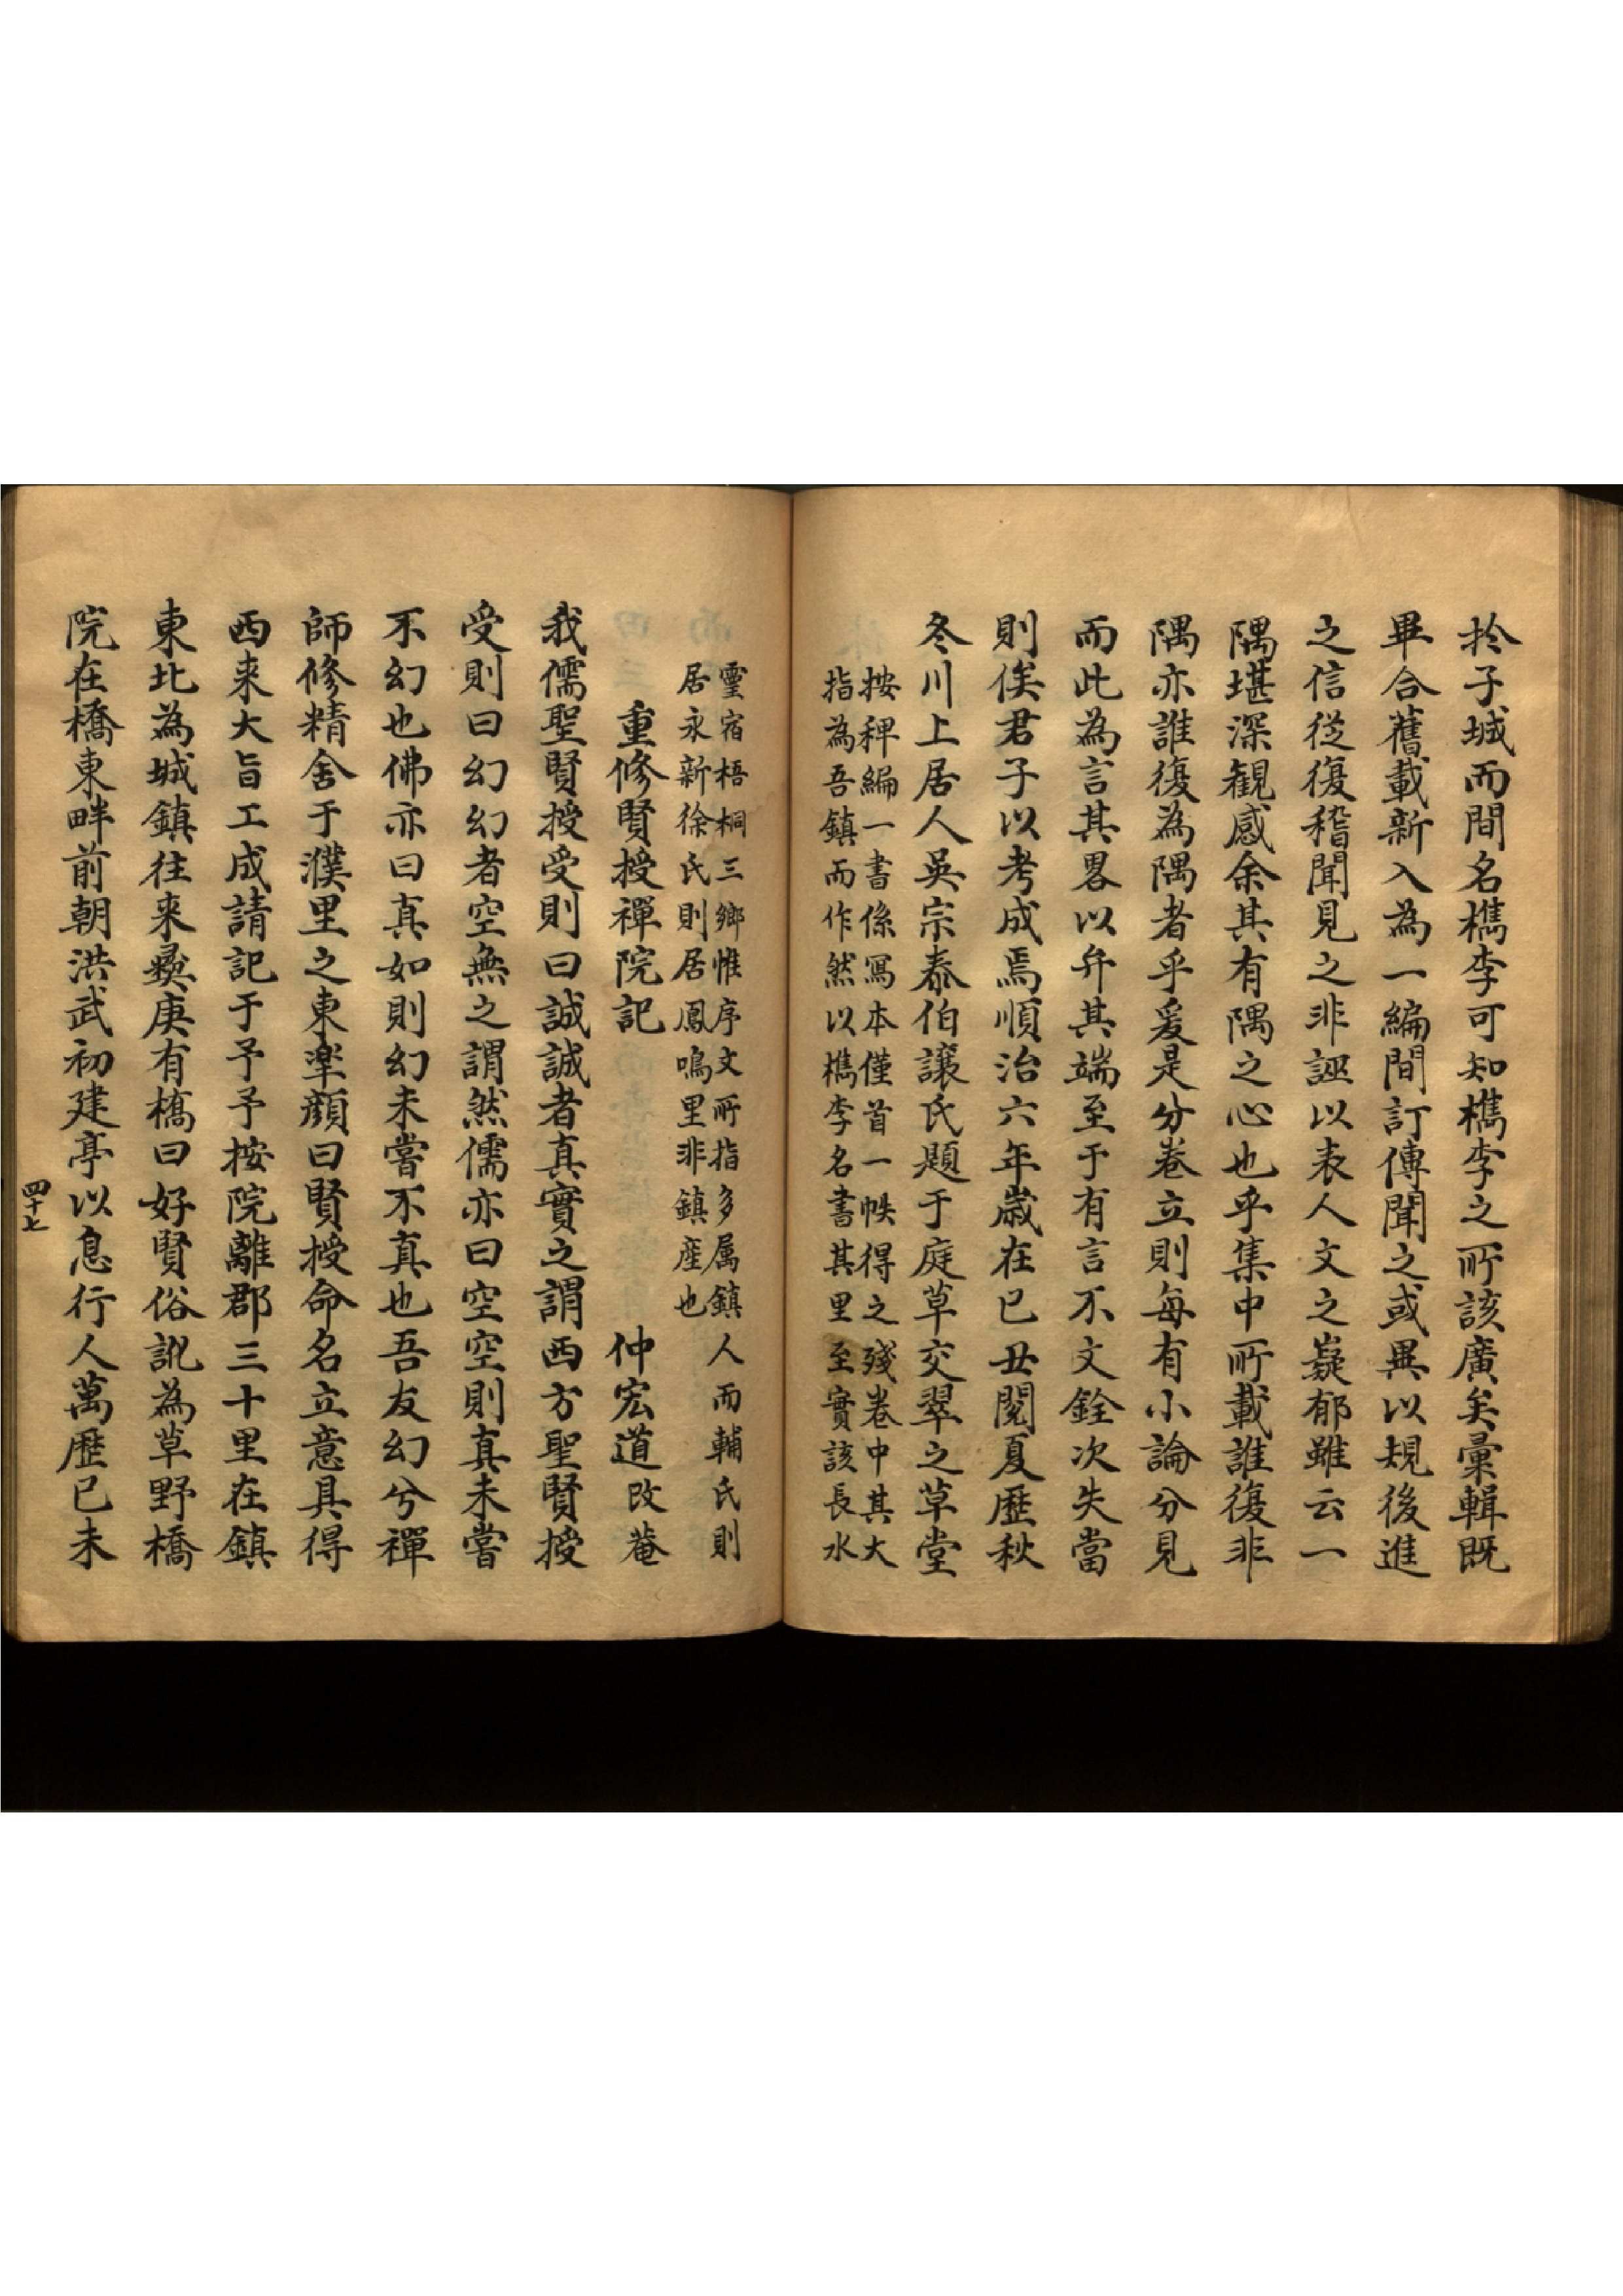 扵子城而間名檇李可知檇李之所該廣矣彙輯既
畢合舊載新入為一編間訂傳聞之或異以規後進
之信從復稽聞見之非誣以表人文之嶷郁雖云一
隅堪深觀感余其有隅之心也乎集中所載誰復非
隅亦誰復為隅者乎爰是分卷立則每有小論分見
而此為言其畧以弁其端至于有言不文銓次失當
則俟君子以考成焉順治六年歲在已丑閱夏歷秋
冬川上居人吳宗泰伯讓氏題于庭草交翠之草堂
按稗編一書係寫本僅首一帙得之殘卷中其大
指為吾鎮而作然以檇李名書其里至實該長水
靈宿梧桐三鄉惟序文所指多属鎮人而輔氏則
居永新徐氏則居鳳鳴里非鎮産也
重修賢授禪院記 仲宏道改菴
我儒聖賢授受則曰誠誠者真實之謂西方聖賢授
受則曰幻幻者空無之謂然儒亦曰空空則真未嘗
不幻也佛亦曰真如則幻未嘗不真也吾友幻兮禪
師修精舍于濮里之東楽顔曰賢授命名立意具得
西来大旨工成請記于予予按院離郡三十里在鎮
東北為城鎮往来彛庚有橋曰好賢俗訛為草野橋
院在橋東畔前朝洪武初建亭以息行人萬歷已未
四十七